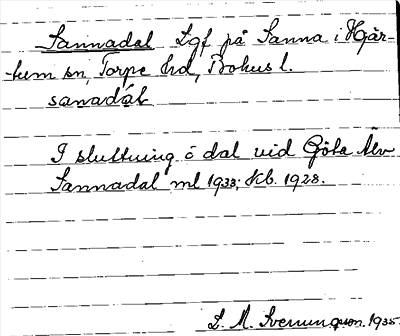 Sannadal Lgf på Sanna i Hjär-
tum sn, Torpe hd, Bohus l.
sanadál
I sluttning o dal vid Göta Älv
Sannadal ml 1933; Kb. 1928.
L. M. Svenungsson. 1935